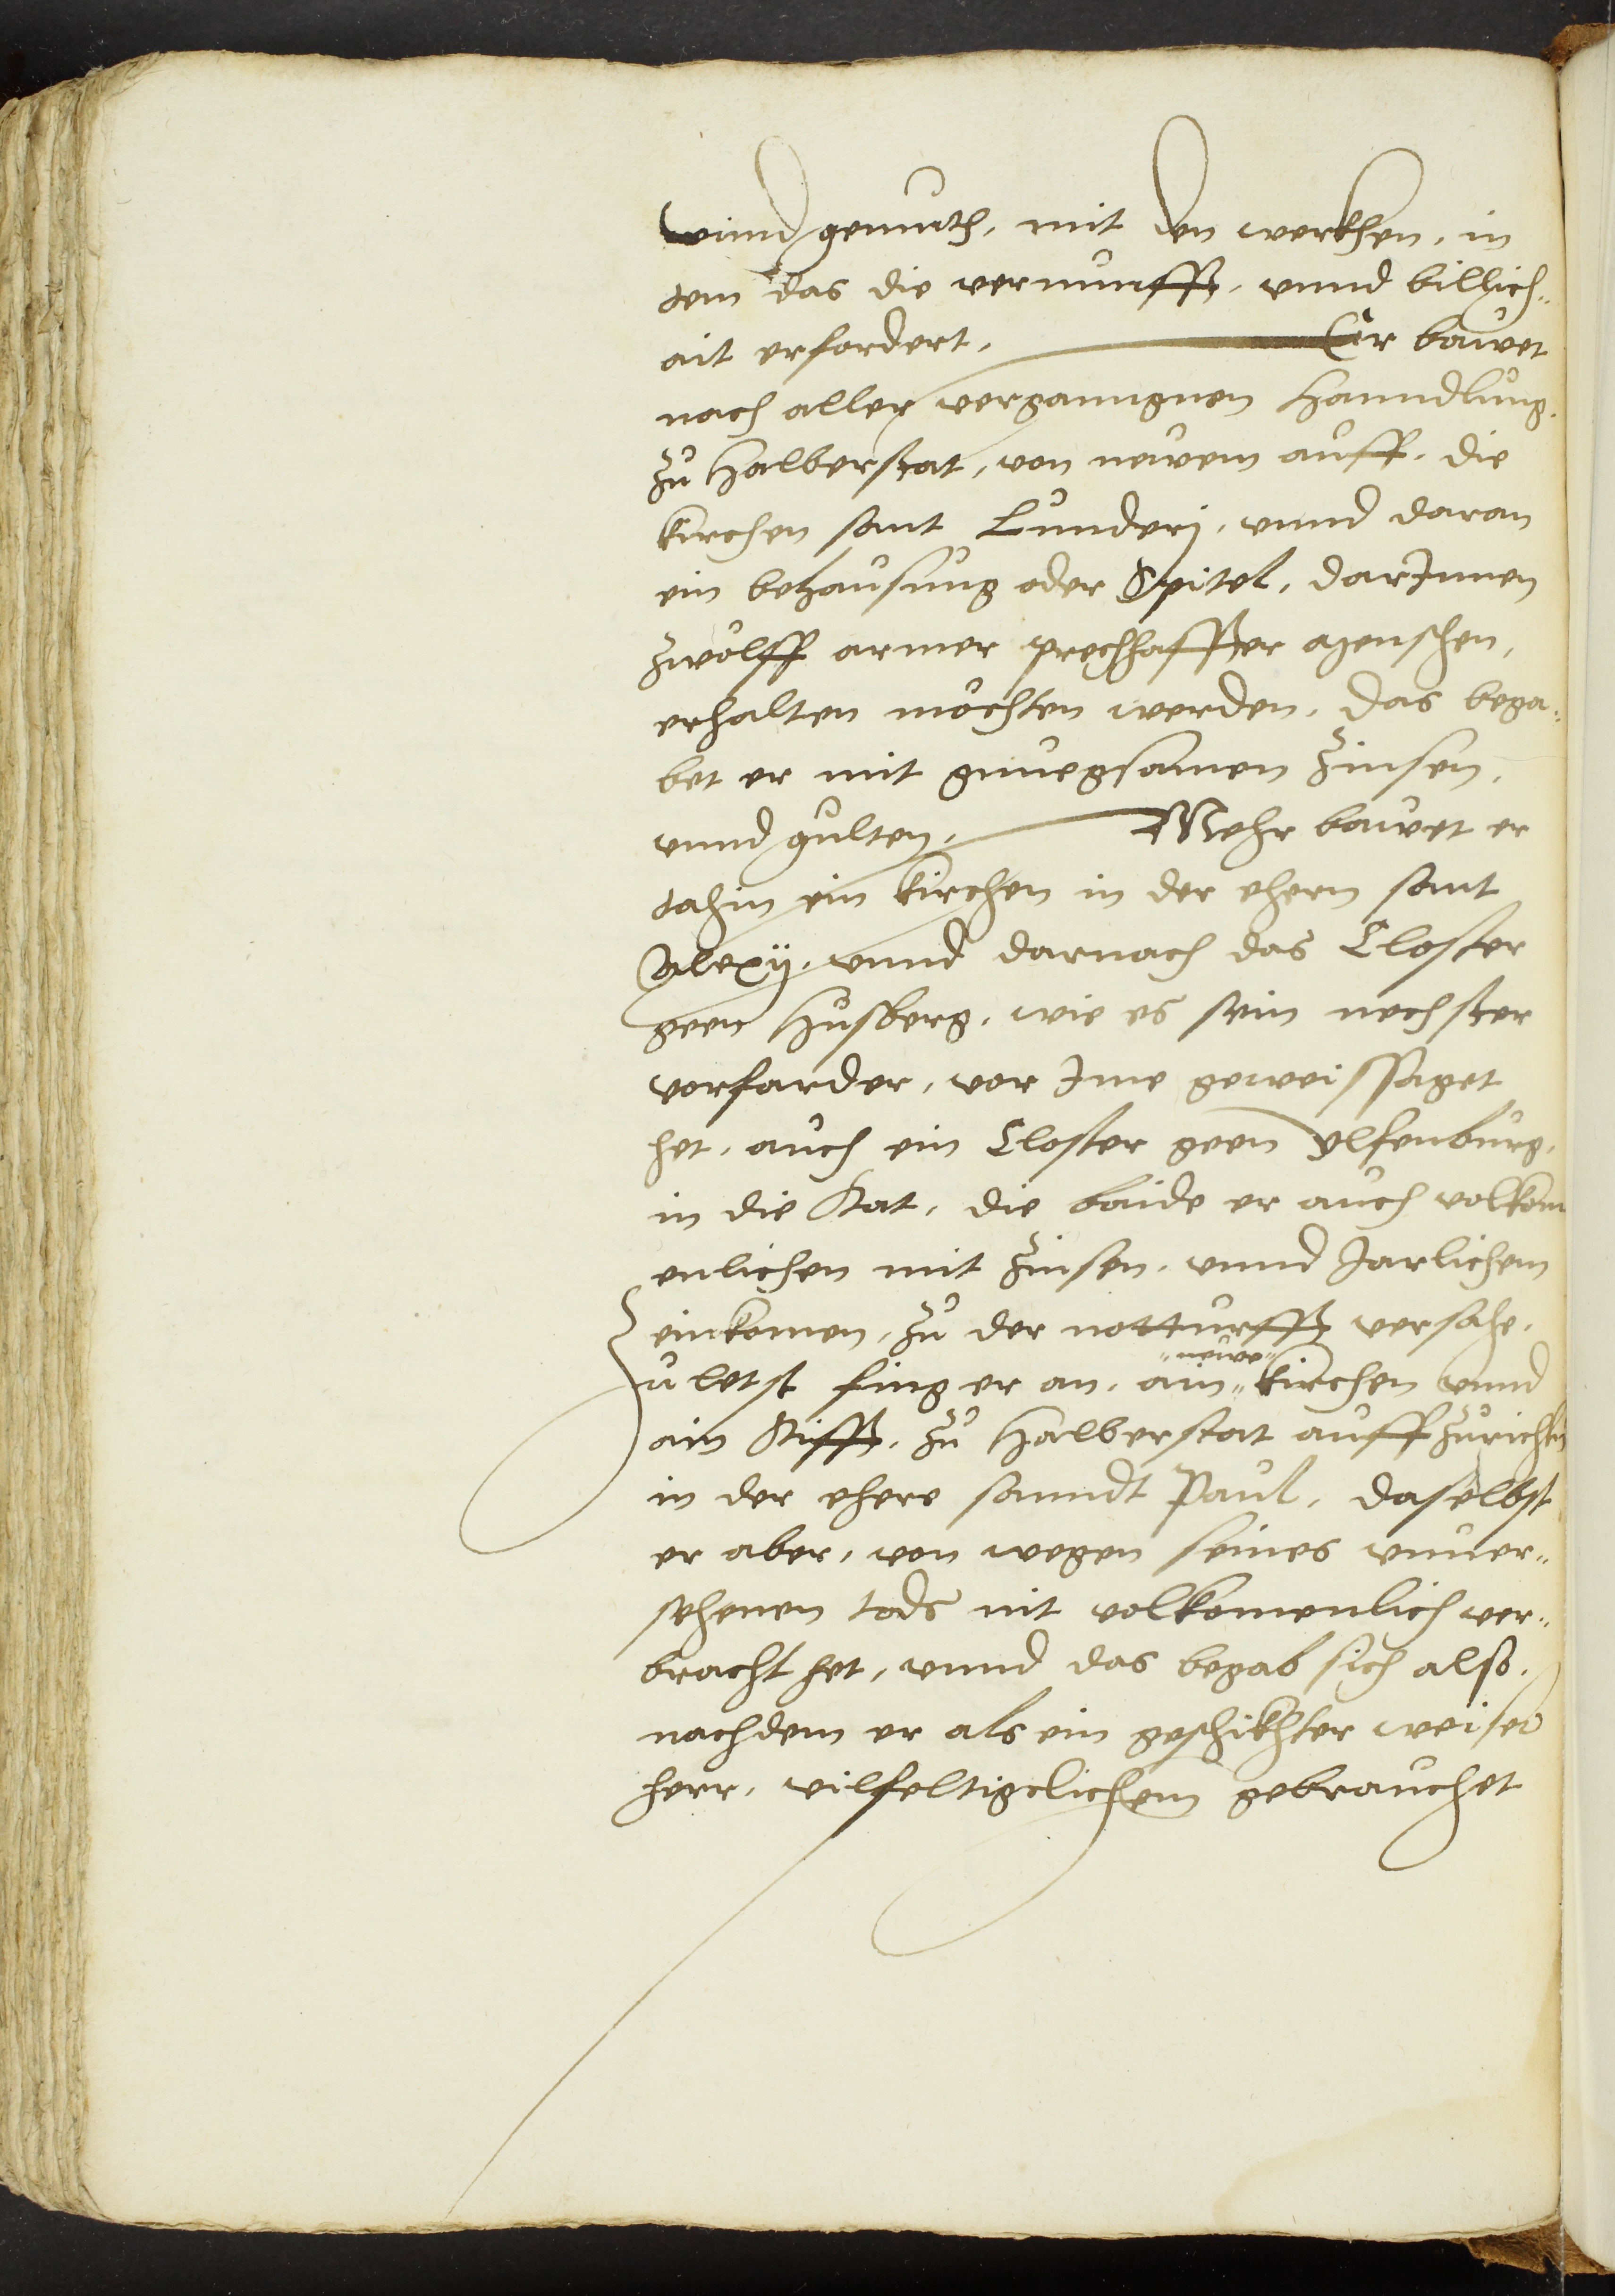 vnnd gemuth, mit den werkhen, in
dem das die vernunfft, vnnd billich¬
ait erfordert, Er bauet
nach aller vergangnen Hanndlung,
zu Halberstat, von newem auff, die
kirchen sant Lunderj, vnnd daran
ein behausung oder Spitel, darInnen
zwölff armer prechhaffter menschen,
erhalten möchten werden, das bega¬
bet er mit gnuegsamen Zinsen,
vnnd gulten, Mehr bauet er
dahin ein kirchen in der ehern sant
Alexij, vnnd darnach das Closter
geen Husberg, wie es sein nechster
vorfarder, vor Ime geweissaget
het, auch ein Closter geen Ylsenburg,
in die Stat, die baide er auch volkom
enlichen mit Zinsen, vnnd Jarlichem
einkomen, zu der notturfft versahe,
Zuletst fing er an, ain "newe" kirchen vnnd
ain Stifft, zu Halberstat auffzurichten
in der ehere sanndt Paul, daselbst
er aber, von wegen seines vnuer¬
sehenen tods nit volkomenlich ver¬
bracht het, vnnd das begab sich also,
nachdem er als ein geschikhter weiser
herr, vilfeltigclichem gebrauchet